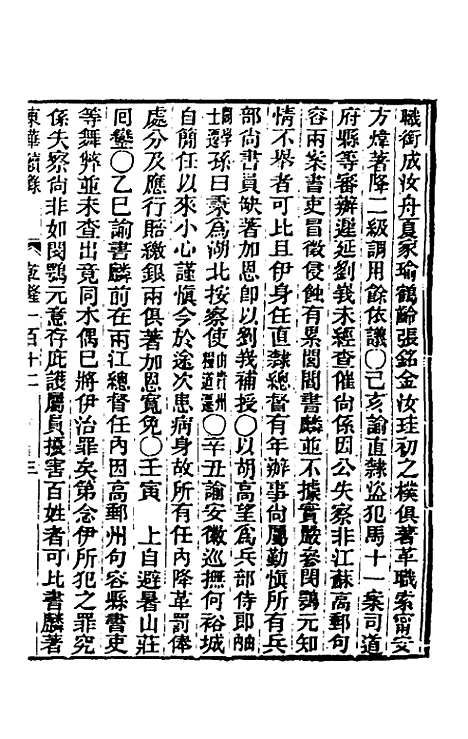 職銜成汝舟夏家瑜鶴齡張銘金汝珪初之樸俱著革職索甯安
方煒著降二級調用餘依議〇己亥諭直隸盜犯馬十一案司道
府縣等審辦遲延劉峩未經查催尚係因公失察非江蘇高郵句
容兩案書吏冒徵侵蝕有累閭閻書麟並不據實嚴參閔鶚元知
情不舉者可比且伊身任直隸總督有年辦事尚屬勤愼所有兵
部尚書員缺著加恩卽以劉峩補授〇以胡高望爲兵部侍郎由
閣學遷孫曰秉爲湖北按察使由貴州糧道遷〇辛丑諭安徽巡撫何裕城
自簡任以來小心謹愼今於途次患病身故所有任內降革罰俸
處分及應行賠繳銀兩俱著加恩寬免〇壬寅　上自避暑山莊
回鑾〇乙巳諭書麟前在兩江總督任內因高郵州句容縣書吏
等舞弊並未查出竟同木偶已將伊治罪矣第念伊所犯之罪究
係失察尚非如閔鶚元意存庇護屬員擾害百姓者可比書麟著
東華續錄　乾隆一百十二　三